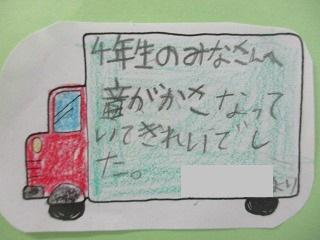 4年生のみなさんへ
音がかさなって
いてきれいでし
た。
より